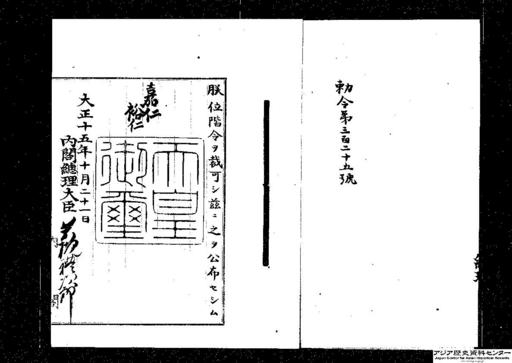 勅令第三百二十五號
朕位階令ヲ裁可シ茲ニ之ヲ公布セシム
嘉仁
裕仁
天皇
御璽
大正十五年十月二十一日
内閣總理大臣
アジア歴史資料センター
Japan Center for Asian Historical Records